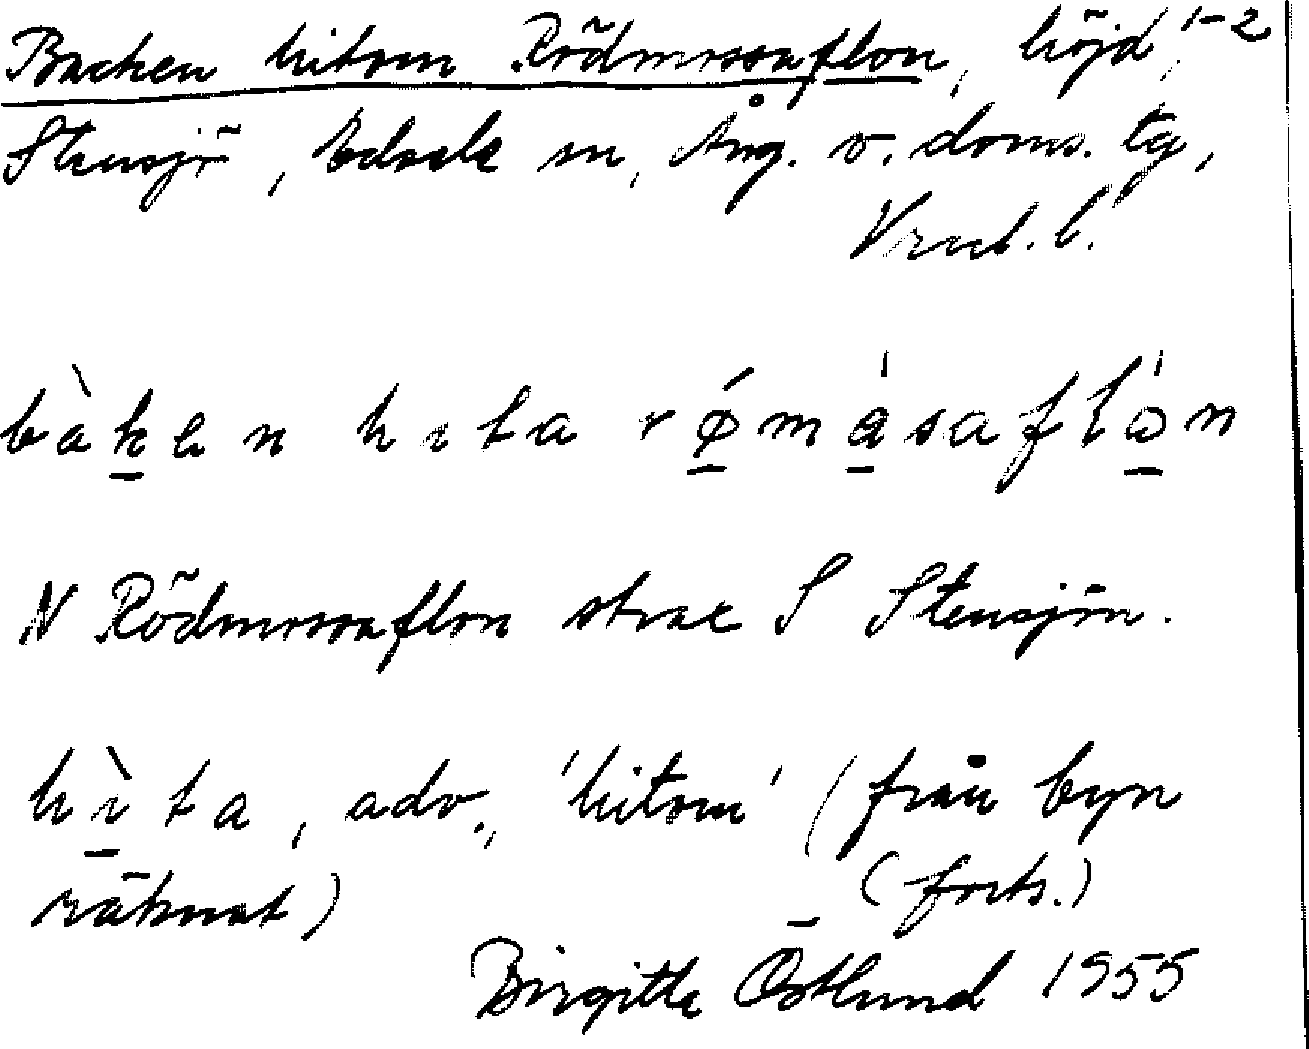 Backen hitom Rödmossaflon, höjd, 1-2
Stensjö, Edsele sn, Ång. v. doms. tg,
Vnrl. l.
bàken hıta rǿmásaflón
N Rödmossaflon strax S Stensjön.
hìta, adv., 'hitom' (från byn
räknat) (forts.)
Birgitta Östlund 1955